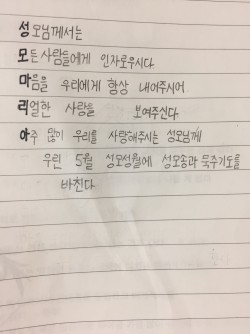 성모님께서는
모든사람들에게 인자로우시다
마음을 우리에게 항상 내어주시어
리얼한 사랑을 보여주신다
아주 많이 우리를 사랑해주시는 성모님께
우린 5월 성모성월에 성모송과 묵주기도를
바친다